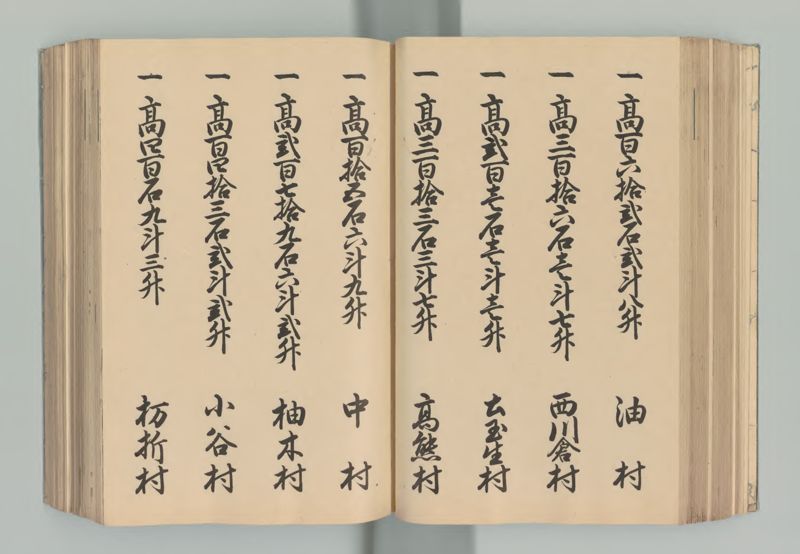 一 高百六拾弐石弐斗八升 油村
一 高三百拾六石壱斗七升 西川倉村
一 高弐百壱石壱斗壱升 土玉生村
一 高三百拾三石三斗七升 高熊村
一 高百拾五石六斗九升 中村
一 高弐百七拾九石六斗弐升 柚木村
一 高百四拾三石弐斗弐升 小谷村
一 高四百石九斗三升 折村